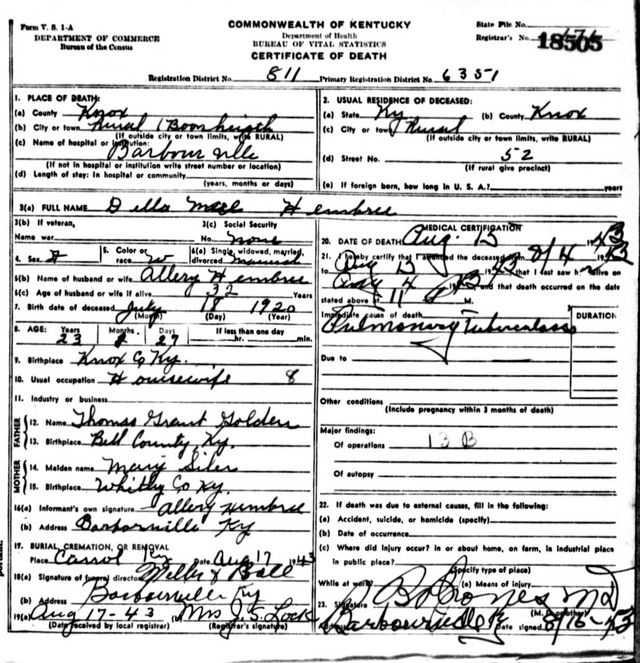 Form V. S. 1-A
DEPARTMENT OF COMMERCE
Bureau of the Census
COMMONWEALTH OF KENTUCKY
Department of Health
BUREAU OF VITAL STATISTICS
CERTIFICATE OF DEATH
State File No.
Registrar's No.
18505
Registration District No. 811 Primary Registration District No. 6351
1. PLACE OF DEATH:
(a) County Knox
(b) City or town Rural
(If outside city or town limits, write RURAL)
(c) Name of hospital or institution:
Barbourville
(If not in hospital or institution write street number or location)
(d) Length of stay: In hospital or community
(years, months or days)
2. USUAL RESIDENCE OF DECEASED:
(a) State Ky (b) County Knox
(c) City or town Rural
(If outside city or town limits, write RURAL)
(d) Street No. 52
(If rural give precinct)
(e) If foreign born, how long in U. S. A.? years
3(a) FULL NAME Della Hembree
3(b) If veteran,
Name war
3(c) Social Security
No. none
4. Sex 5. Color or race w 6(a) Single, widowed, married, divorced
6(b) Name of husband or wife Allery Hembree
6(c) Age of husband or wife if alive 32 Years
7. Birth date of deceased July 18 1920
(Month) (Day) (Year)
8. AGE: Years Months Days If less than one day
23 27 hr. min.
9. Birthplace Knox Co Ky.
10. Usual occupation Housewife 8
11. Industry or business
FATHER
12. Name Thomas Grant Golden
13. Birthplace Bell County, Ky.
MOTHER
14. Maiden name Siler
15. Birthplace Whitley Co Ky.
16(a) Informant's own signature Allery Hembree
(b) Address Barbourville Ky
17. BURIAL, CREMATION, OR REMOVAL
Place Ky Date Aug 17 1943
18(a) Signature of funeral director
(b) Address Barbourville Ky
19(a) Aug 17-43 Mrs J. S. Lock
(Date received by local registrar) (Registrar's signature)
MEDICAL CERTIFICATION
20. DATE OF DEATH Aug. 15 1943
21. I hereby certify that I attended the deceased from 8/4 1943
to Aug 15 1943 that I last saw h alive on
Aug 4 1943 and that death occurred on the date
stated above at 11 M.
Immediate cause of death
Pulmonary Tuberculosis
DURATION
Due to
Other conditions
(Include pregnancy within 3 months of death)
Major findings:
Of operations 13 B
Of autopsy
22. If death was due to external causes, fill in the following:
(a) Accident, suicide, or homicide (specify)
(b) Date of occurrence
(c) Where did injury occur? In or about home, on farm, in industrial place
in public place?
(Specify type of place)
While at work? (e) Means of injury
23. Signature Jones MD
Barbourville Ky 8/16-43